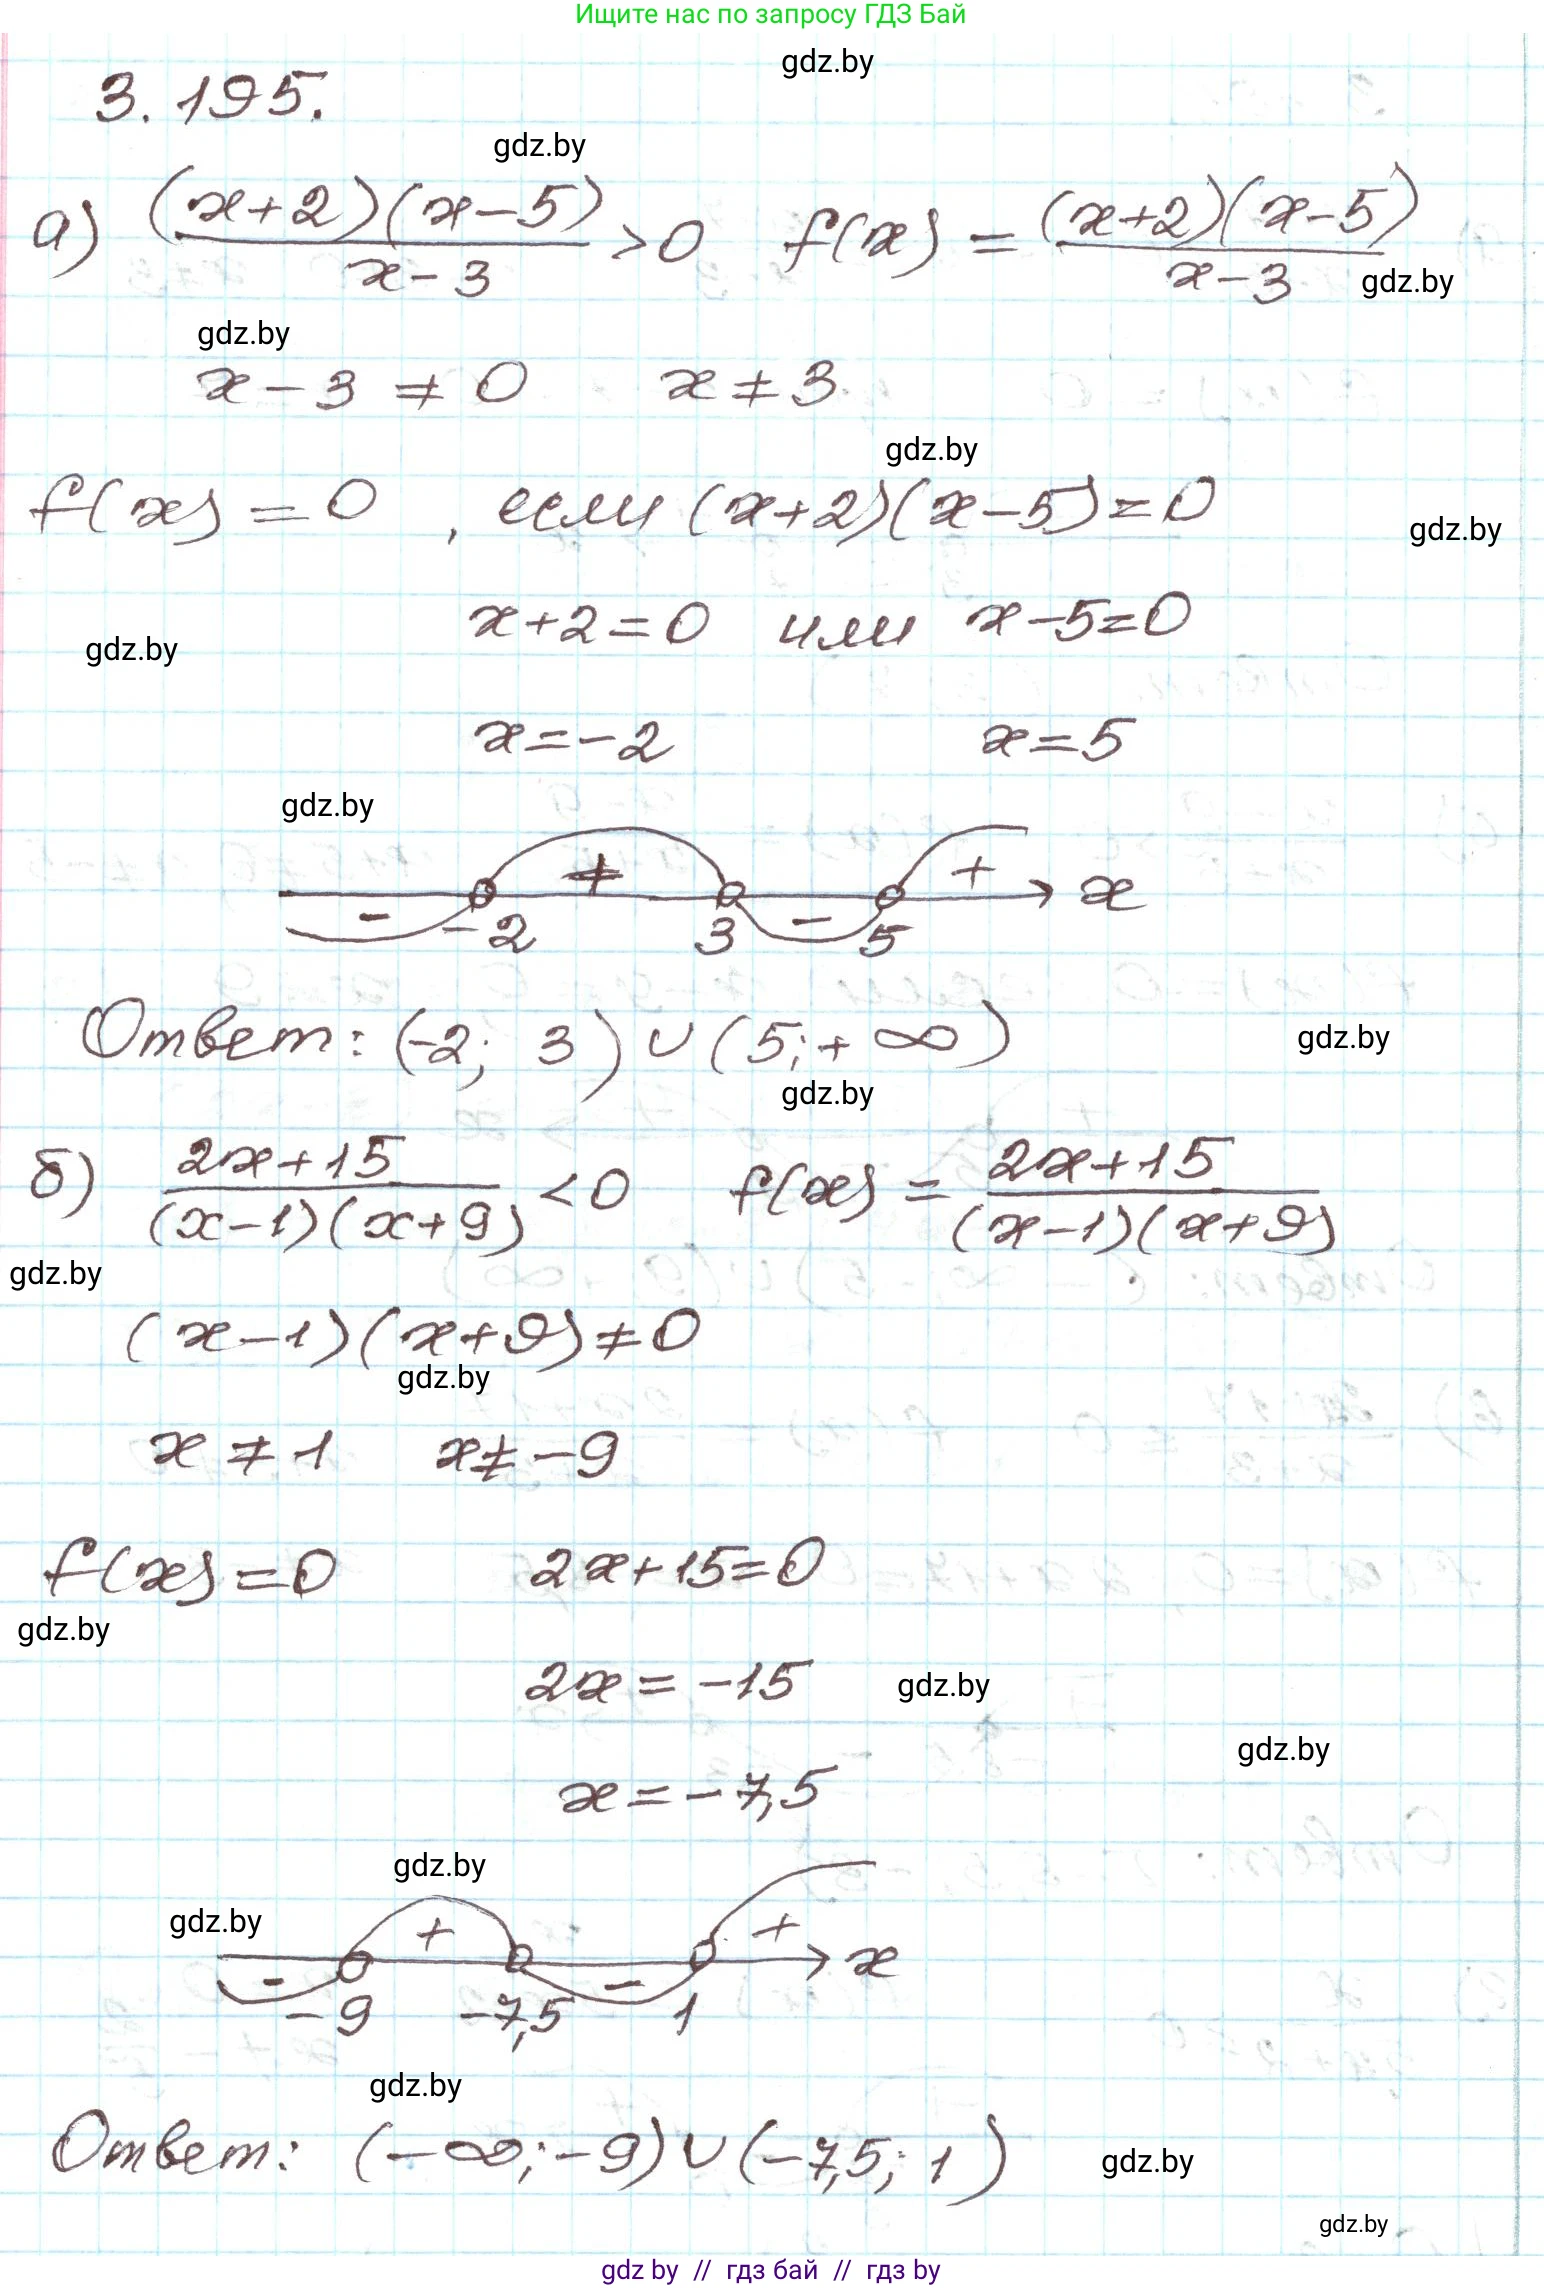 Ищите нас по запросу ГДЗ Бай
gdz.by
3.195.
gdz.by
а) (x+2)(x-5)/(x-3) > 0 f(x) = (x+2)(x-5)/(x-3)
gdz.by
gdz.by
x-3 ≠ 0 x ≠ 3
gdz.by
f(x) = 0, если (x+2)(x-5)=0
gdz.by
x+2=0 или x-5=0
gdz.by
x=-2 x=5
gdz.by
- + - + x
-2 3 5
Ответ: (-2; 3) ∪ (5; +∞)
gdz.by
gdz.by
б) (2x+15)/((x-1)(x+9)) < 0 f(x) = (2x+15)/((x-1)(x+9))
gdz.by
(x-1)(x+9) ≠ 0
gdz.by
x ≠ 1 x ≠ -9
f(x)=0 2x+15=0
gdz.by
2x = -15
gdz.by
gdz.by
x = -7,5
gdz.by
gdz.by
- + - + x
-9 -7,5 1
gdz.by
Ответ: (-∞; -9) ∪ (-7,5; 1)
gdz.by
gdz.by
gdz by // гдз бай // гдз by